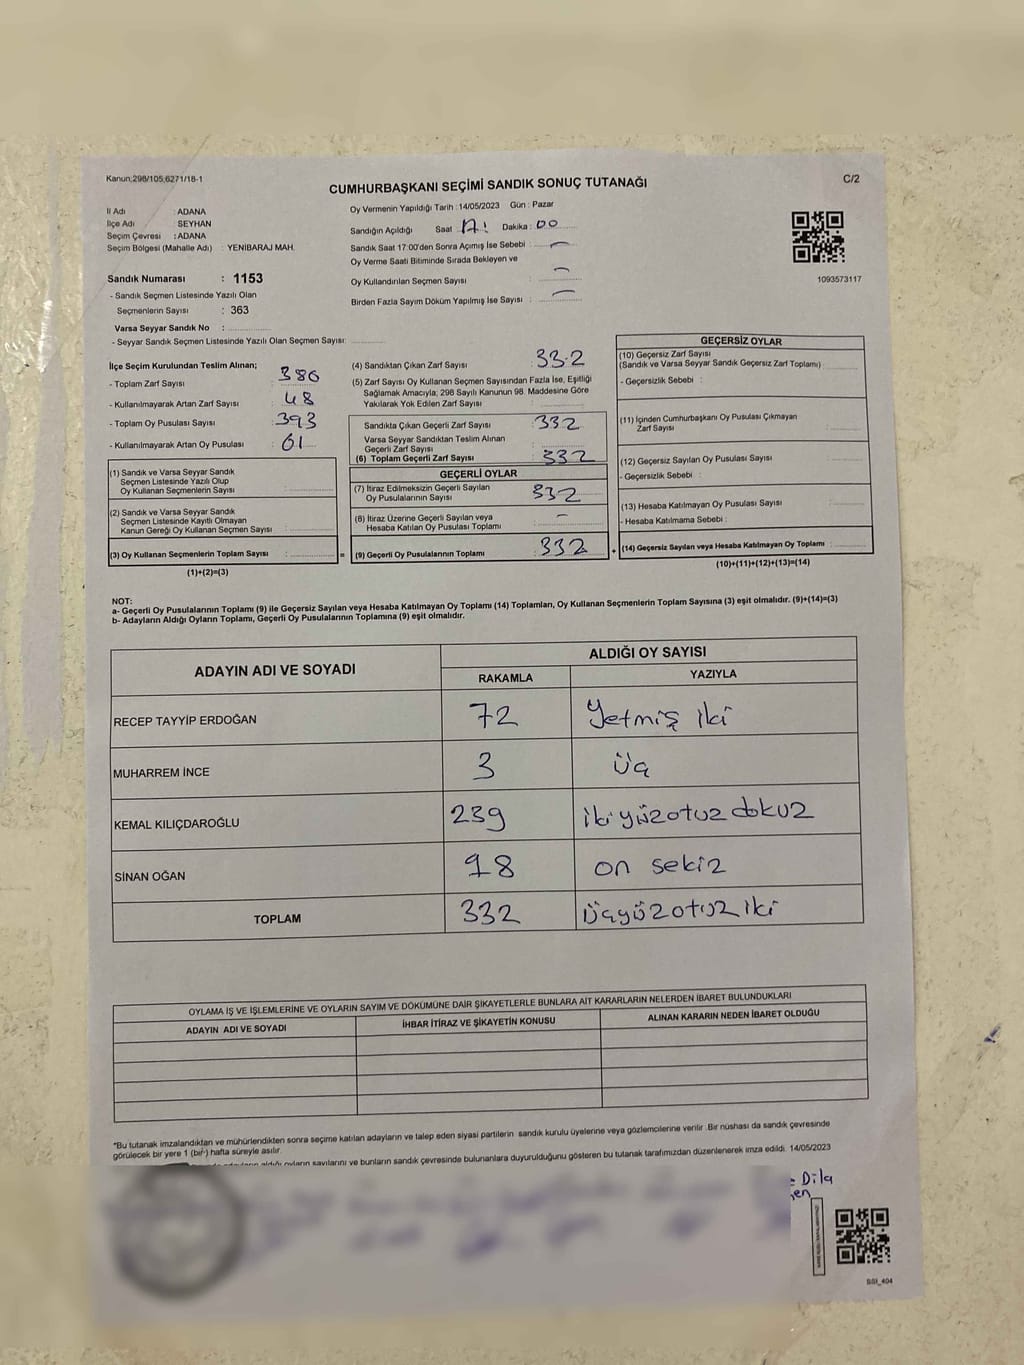 Kanun:298/105,6271/18-1
C/2
CUMHURBAŞKANI SEÇİMİ SANDIK SONUÇ TUTANAĞI
İl Adı : ADANA
İlçe Adı : SEYHAN
Seçim Çevresi : ADANA
Seçim Bölgesi (Mahalle Adı) : YENİBARAJ MAH.
Oy Vermenin Yapıldığı Tarih :14/05/2023 Gün : Pazar
Sandığın Açıldığı Saat 17: Dakika : 00
Sandık Saat 17:00'den Sonra Açımış İse Sebebi : —
Oy Verme Saati Bitiminde Sırada Bekleyen ve
Oy Kullandırılan Seçmen Sayısı : —
Birden Fazla Sayım Döküm Yapılmış İse Sayısı : —
1093573117
Sandık Numarası : 1153
- Sandık Seçmen Listesinde Yazılı Olan
Seçmenlerin Sayısı : 363
Varsa Seyyar Sandık No :
- Seyyar Sandık Seçmen Listesinde Yazılı Olan Seçmen Sayısı:
İlçe Seçim Kurulundan Teslim Alınan;
- Toplam Zarf Sayısı : 380
- Kullanılmayarak Artan Zarf Sayısı : 48
- Toplam Oy Pusulası Sayısı : 393
- Kullanılmayarak Artan Oy Pusulası : 61
(1) Sandık ve Varsa Seyyar Sandık
Seçmen Listesinde Yazılı Olup
Oy Kullanan Seçmenlerin Sayısı :
(2) Sandık ve Varsa Seyyar Sandık
Seçmen Listesinde Kayıtlı Olmayan
Kanun Gereği Oy Kullanan Seçmen Sayısı :
(3) Oy Kullanan Seçmenlerin Toplam Sayısı : =
(1)+(2)=(3)
(4) Sandıktan Çıkan Zarf Sayısı : 332
(5) Zarf Sayısı Oy Kullanan Seçmen Sayısından Fazla İse, Eşitliği
Sağlamak Amacıyla; 298 Sayılı Kanunun 98. Maddesine Göre
Yakılarak Yok Edilen Zarf Sayısı :
Sandıkta Çıkan Geçerli Zarf Sayısı : 332
Varsa Seyyar Sandıktan Teslim Alınan
Geçerli Zarf Sayısı :
(6) Toplam Geçerli Zarf Sayısı : 332
GEÇERLİ OYLAR
(7) İtiraz Edilmeksizin Geçerli Sayılan
Oy Pusulalarının Sayısı : 332
(8) İtiraz Üzerine Geçerli Sayılan veya
Hesaba Katılan Oy Pusulası Toplamı : –
(9) Geçerli Oy Pusulalarının Toplamı : 332 +
GEÇERSİZ OYLAR
(10) Geçersiz Zarf Sayısı
(Sandık ve Varsa Seyyar Sandık Geçersiz Zarf Toplamı) :
- Geçersizlik Sebebi :
(11) İçinden Cumhurbaşkanı Oy Pusulası Çıkmayan
Zarf Sayısı :
(12) Geçersiz Sayılan Oy Pusulası Sayısı :
- Geçersizlik Sebebi :
(13) Hesaba Katılmayan Oy Pusulası Sayısı :
- Hesaba Katılmama Sebebi :
(14) Geçersiz Sayılan veya Hesaba Katılmayan Oy Toplamı :
(10)+(11)+(12)+(13)=(14)
NOT:
a- Geçerli Oy Pusulalarının Toplamı (9) ile Geçersiz Sayılan veya Hesaba Katılmayan Oy Toplamı (14) Toplamları, Oy Kullanan Seçmenlerin Toplam Sayısına (3) eşit olmalıdır. (9)+(14)=(3)
b- Adayların Aldığı Oyların Toplamı, Geçerli Oy Pusulalarının Toplamına (9) eşit olmalıdır.
ADAYIN ADI VE SOYADI
ALDIĞI OY SAYISI
RAKAMLA YAZIYLA
RECEP TAYYİP ERDOĞAN 72 Yetmiş iki
MUHARREM İNCE 3 üç
KEMAL KILIÇDAROĞLU 239 ikiyüzotuzdokuz
SİNAN OĞAN 18 on sekiz
TOPLAM 332 üçyüzotuziki
OYLAMA İŞ VE İŞLEMLERİNE VE OYLARIN SAYIM VE DÖKÜMÜNE DAİR ŞİKAYETLERLE BUNLARA AİT KARARLARIN NELERDEN İBARET BULUNDUKLARI
ADAYIN ADI VE SOYADI İHBAR İTİRAZ VE ŞİKAYETİN KONUSU ALINAN KARARIN NEDEN İBARET OLDUĞU
*Bu tutanak imzalandıktan ve mühürlendikten sonra seçime katılan adayların ve talep eden siyasi partilerin sandık kurulu üyelerine veya gözlemcilerine verilir. Bir nüshası da sandık çevresinde
görülecek bir yere 1 (bir) hafta süreyle asılır.
aldığı oyların sayılarını ve bunların sandık çevresinde bulunanlara duyurulduğunu gösteren bu tutanak tarafımızdan düzenlenerek imza edildi. 14/05/2023
Dila
SSI_404